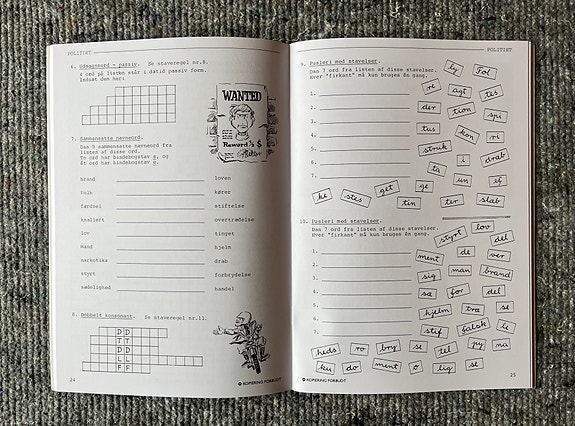 POLITIET
6. Udsagnsord - passiv. Se staveregel nr.8.
4 ord på listen står i datid passiv form.
Indsæt dem her:
WANTED
Reward: $
7. Sammensatte navneord.
Dan 9 sammensatte navneord fra
listen af disse ord.
To ord har bindebogstav s, og
ét ord har bindebogstav e.
brand loven
folk kører
færdsel stiftelse
knallert overtrædelse
lov tinget
mand hjelm
narkotika drab
styrt forbrydelse
sædelighed handel
8. Dobbelt konsonant. Se staveregel nr.11.
DD
TT
DD
LL
FF
24
KOPIERING FORBUDT
POLITIET
9. Pusleri med stavelser.
Dan 7 ord fra listen af disse stavelser.
Hver "firkant" må kun bruges én gang.
1.
2.
3.
4.
5.
6.
7.
by Fol
ri agt tes
der tion spi
tus kon ri
struk i drab
ta un ef
ke stes get ge
tin ter slab
10. Pusleri med stavelser.
Dan 7 ord fra listen af disse stavelser.
Hver "firkant" må kun bruges én gang.
1.
2.
3.
4.
5.
6.
7.
styrt lov del
ment de ver
sig man brand
sa for del
hjelm træ se
stif falsk le
heds ro bry se tel py na
ku do ment o lig se
KOPIERING FORBUDT
25